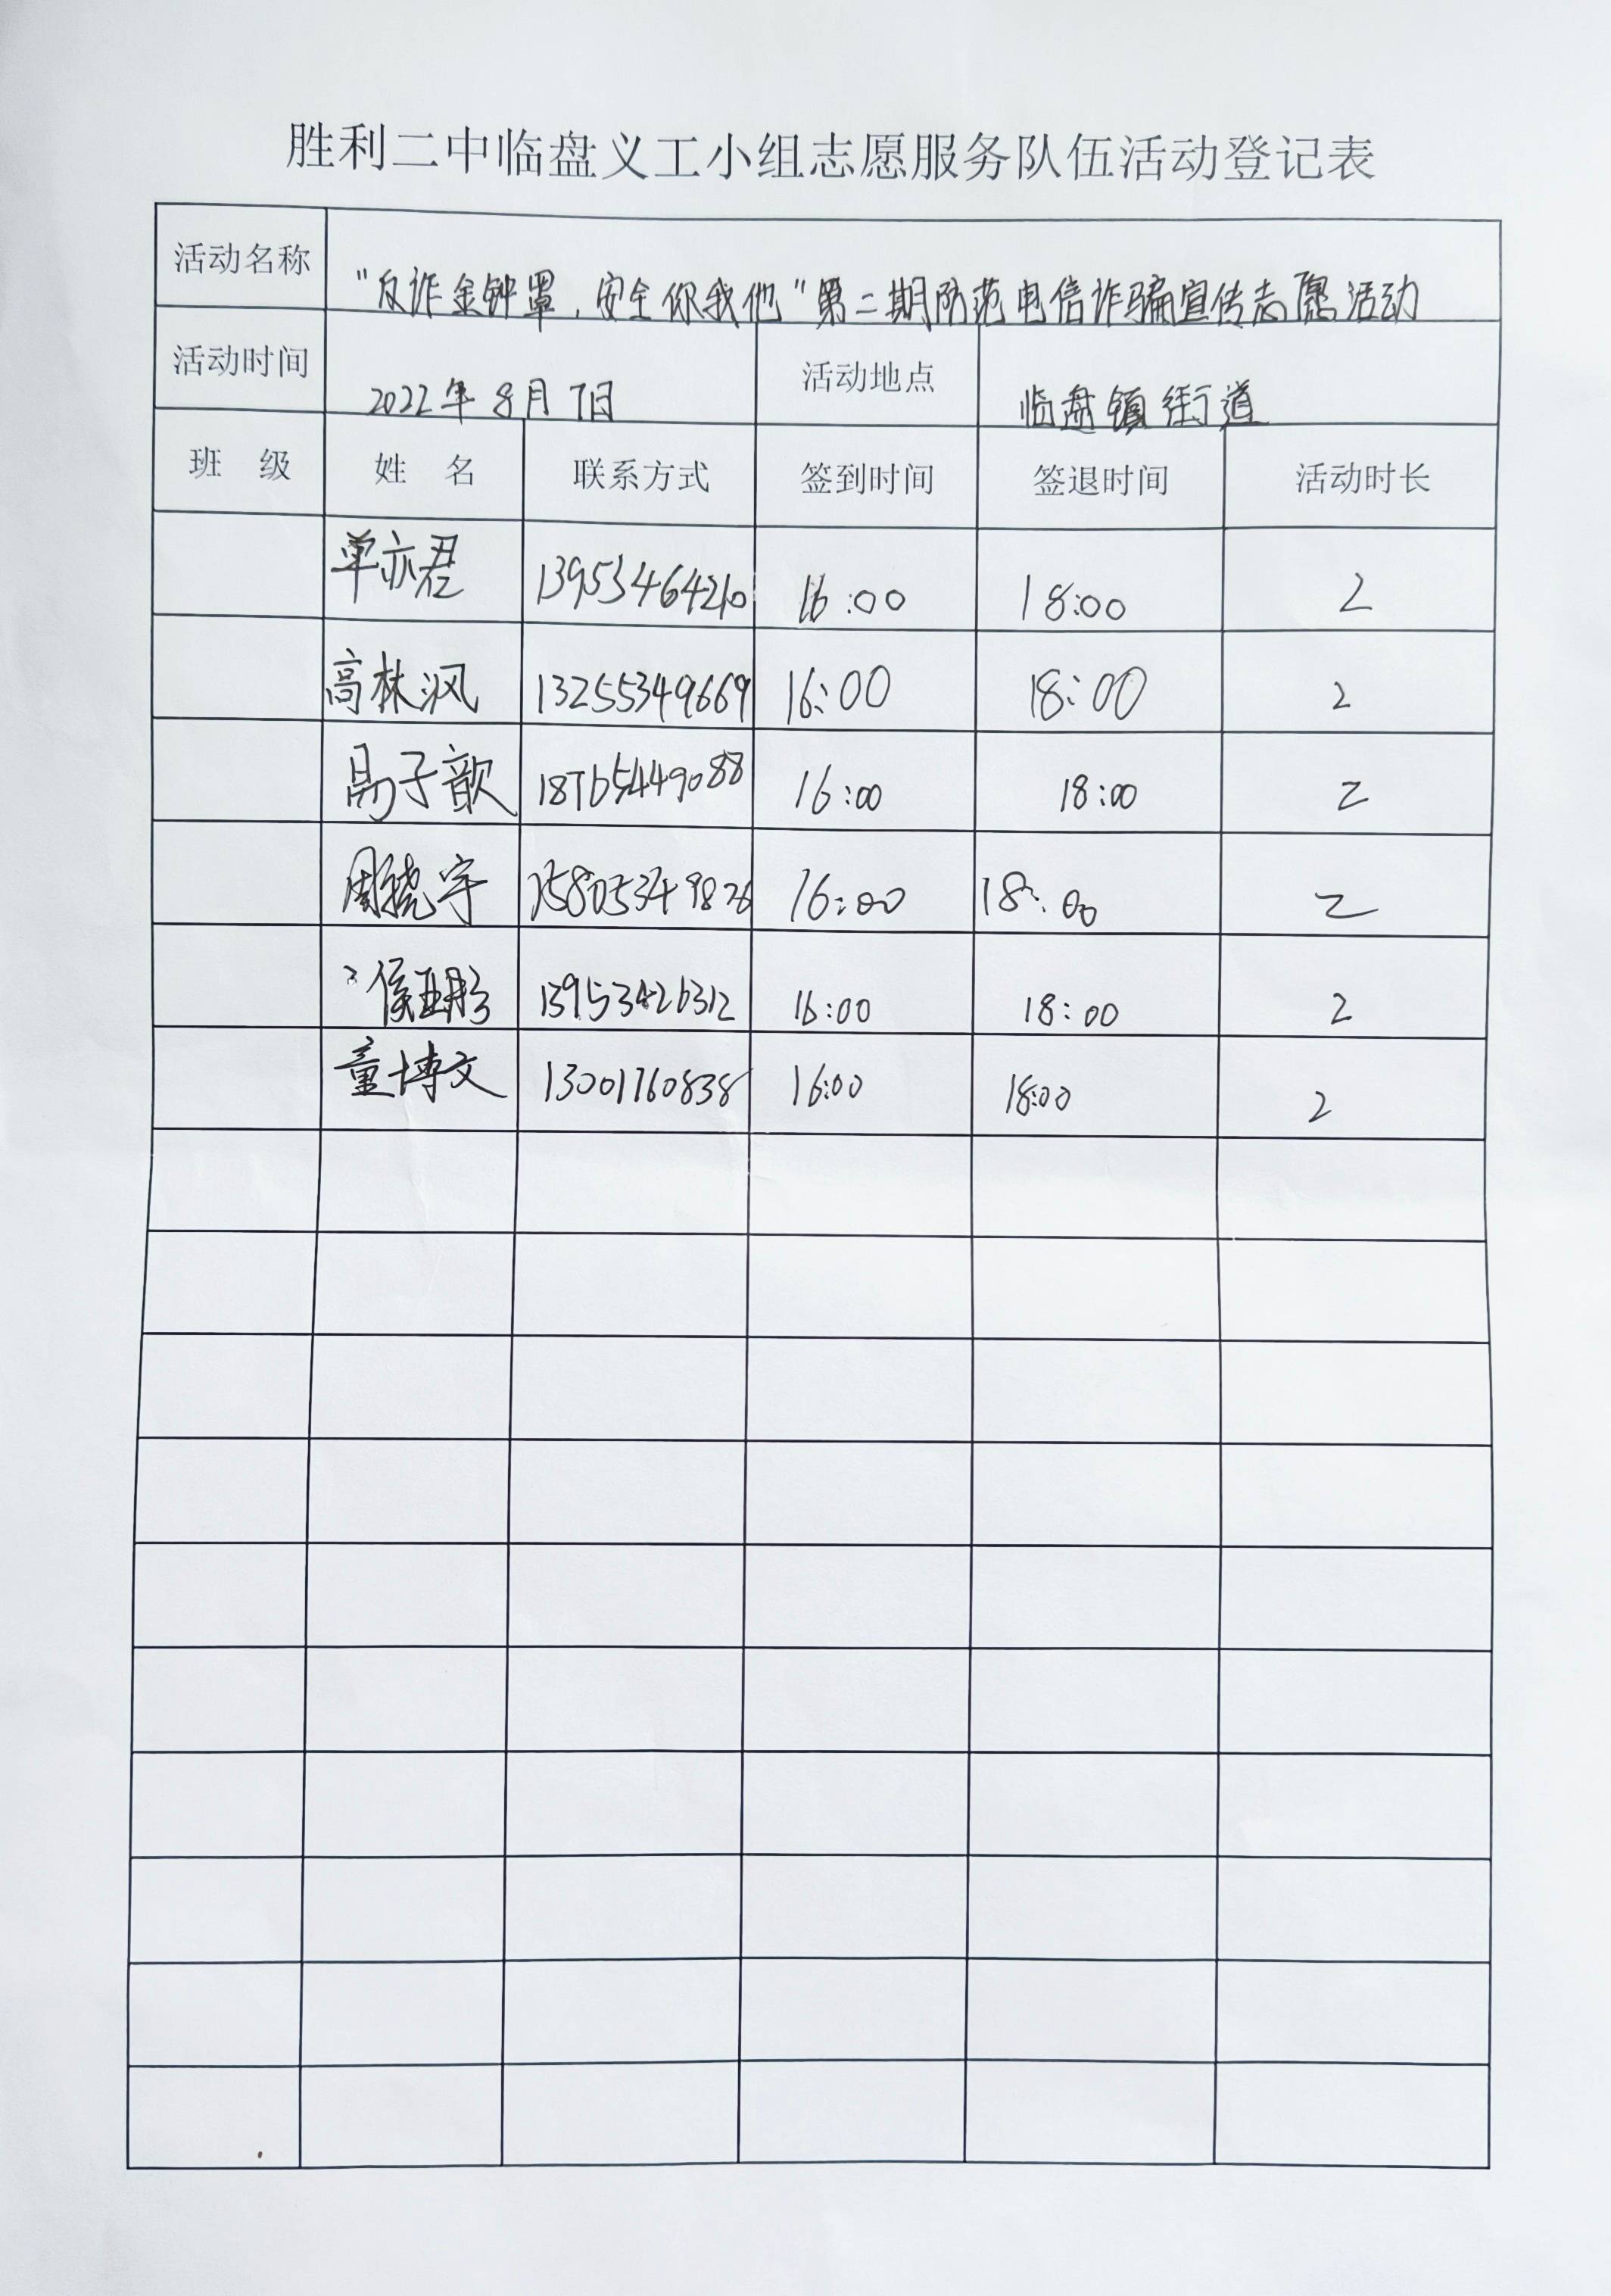 胜利二中临盘义工小组志愿服务队伍活动登记表
活动名称 "反诈金钟罩，安全你我他"第二期防范电信诈骗宣传志愿活动
活动时间 2022年8月7日 活动地点 临盘镇街道
班 级 姓 名 联系方式 签到时间 签退时间 活动时长
单亦君 13953464210 16:00 18:00 2
高林沨 13255349669 16:00 18:00 2
子歆 18765449088 16:00 18:00 2
周晓宇 16:00 18:00 2
侯玥彤 13953426312 16:00 18:00 2
童博文 13001760838 16:00 18:00 2